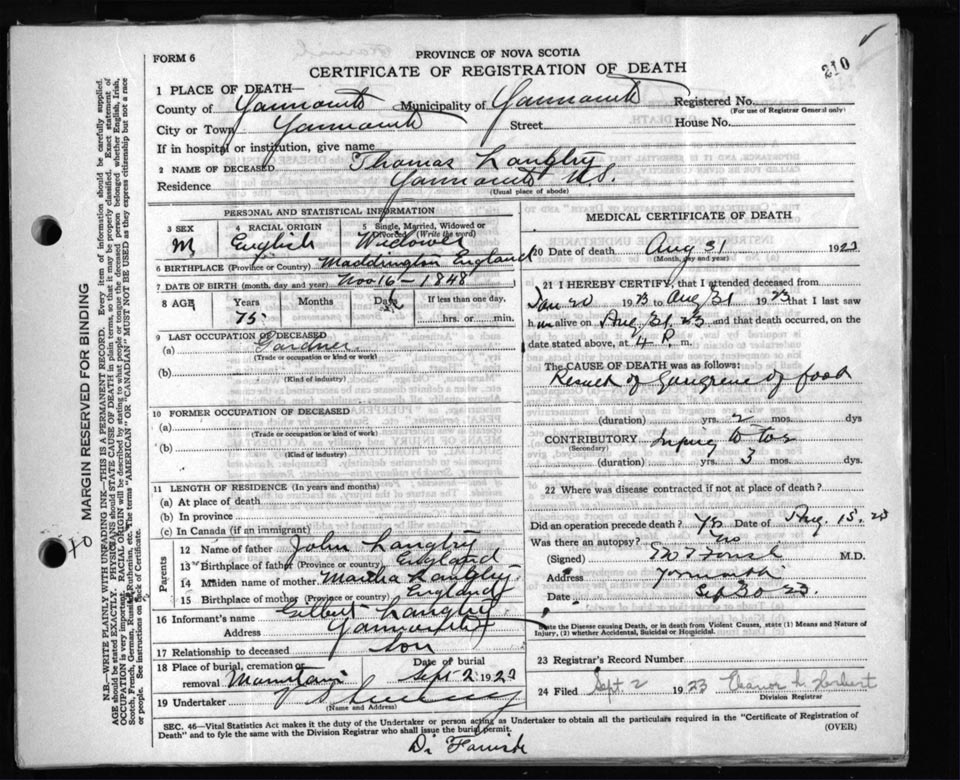 FORM 6
PROVINCE OF NOVA SCOTIA
CERTIFICATE OF REGISTRATION OF DEATH
210
1 PLACE OF DEATH—
County of Yarmouth Municipality of Yarmouth Registered No.
(For use of Registrar General only)
City or Town Yarmouth Street House No.
If in hospital or institution, give name
2 NAME OF DECEASED Thomas Langley
Residence Yarmouth N.S.
(Usual place of abode)
PERSONAL AND STATISTICAL INFORMATION
3 SEX M
4 RACIAL ORIGIN English
5 Single, Married, Widowed or Divorced (Write the word) Widower
6 BIRTHPLACE (Province or Country) Maddington England
7 DATE OF BIRTH (month, day and year) Nov 16 - 1848
8 AGE Years Months Days If less than one day,
75 hrs. or min.
9 LAST OCCUPATION OF DECEASED
(a) Gardner
(Trade or occupation or kind or work)
(b)
(Kind of industry)
10 FORMER OCCUPATION OF DECEASED
(a)
(Trade or occupation or kind of work)
(b)
(Kind of industry)
11 LENGTH OF RESIDENCE (In years and months)
(a) At place of death
(b) In province
(c) In Canada (if an immigrant)
Parents
12 Name of father John Langley
13 Birthplace of father (Province or country) England
14 Maiden name of mother Martha Langley
15 Birthplace of mother (Province or country) England
16 Informant's name Gilbert Langley
Address Yarmouth
17 Relationship to deceased son
18 Place of burial, cremation or removal Mountain
Date of burial Sept 2 1923
19 Undertaker
(Name and Address)
MEDICAL CERTIFICATE OF DEATH
20 Date of death Aug 31 1923
(Month, day and year)
21 I HEREBY CERTIFY, that I attended deceased from
Jan 20 1923 to Aug 31 1923 that I last saw
him alive on Aug 31, 23 and that death occurred, on the
date stated above, at 4 P. m.
The CAUSE OF DEATH was as follows:
Result of Gangrene of foot
(duration) yrs. 2 mos. dys
CONTRIBUTORY Injury to toe
(Secondary)
(duration) yrs. 3 mos. dys.
22 Where was disease contracted if not at place of death?
Did an operation precede death? Yes Date of Aug. 15. 23
Was there an autopsy? no
(Signed) M.D.
Address Yarmouth
Date Sep 23
State the Disease causing Death, or in death from Violent Causes, state (1) Means and Nature of Injury, (2) whether Accidental, Suicidal or Homicidal.
23 Registrar's Record Number
24 Filed Sept. 2 1923 Eleanor L. Herbert
Division Registrar
SEC. 46—Vital Statistics Act makes it the duty of the Undertaker or person acting as Undertaker to obtain all the particulars required in the "Certificate of Registration of
Death" and to fyle the same with the Division Registrar who shall issue the burial permit. (OVER)
MARGIN RESERVED FOR BINDING
N.B.—WRITE PLAINLY WITH UNFADING INK—THIS IS A PERMANENT RECORD. Every item of information should be carefully supplied.
AGE should be stated EXACTLY. PHYSICIANS should STATE CAUSE OF DEATH in plain terms, so that it may be properly classified. Exact statement of
OCCUPATION is very important. RACIAL ORIGIN will be described by stating to what people or tongue the deceased person belonged whether English, Irish,
Scotch, French, German, Russian, Ruthenian, etc. The terms "AMERICAN" OR "CANADIAN" MUST NOT BE USED as they express citizenship but not a race
or people. See instructions on back of Certificate.